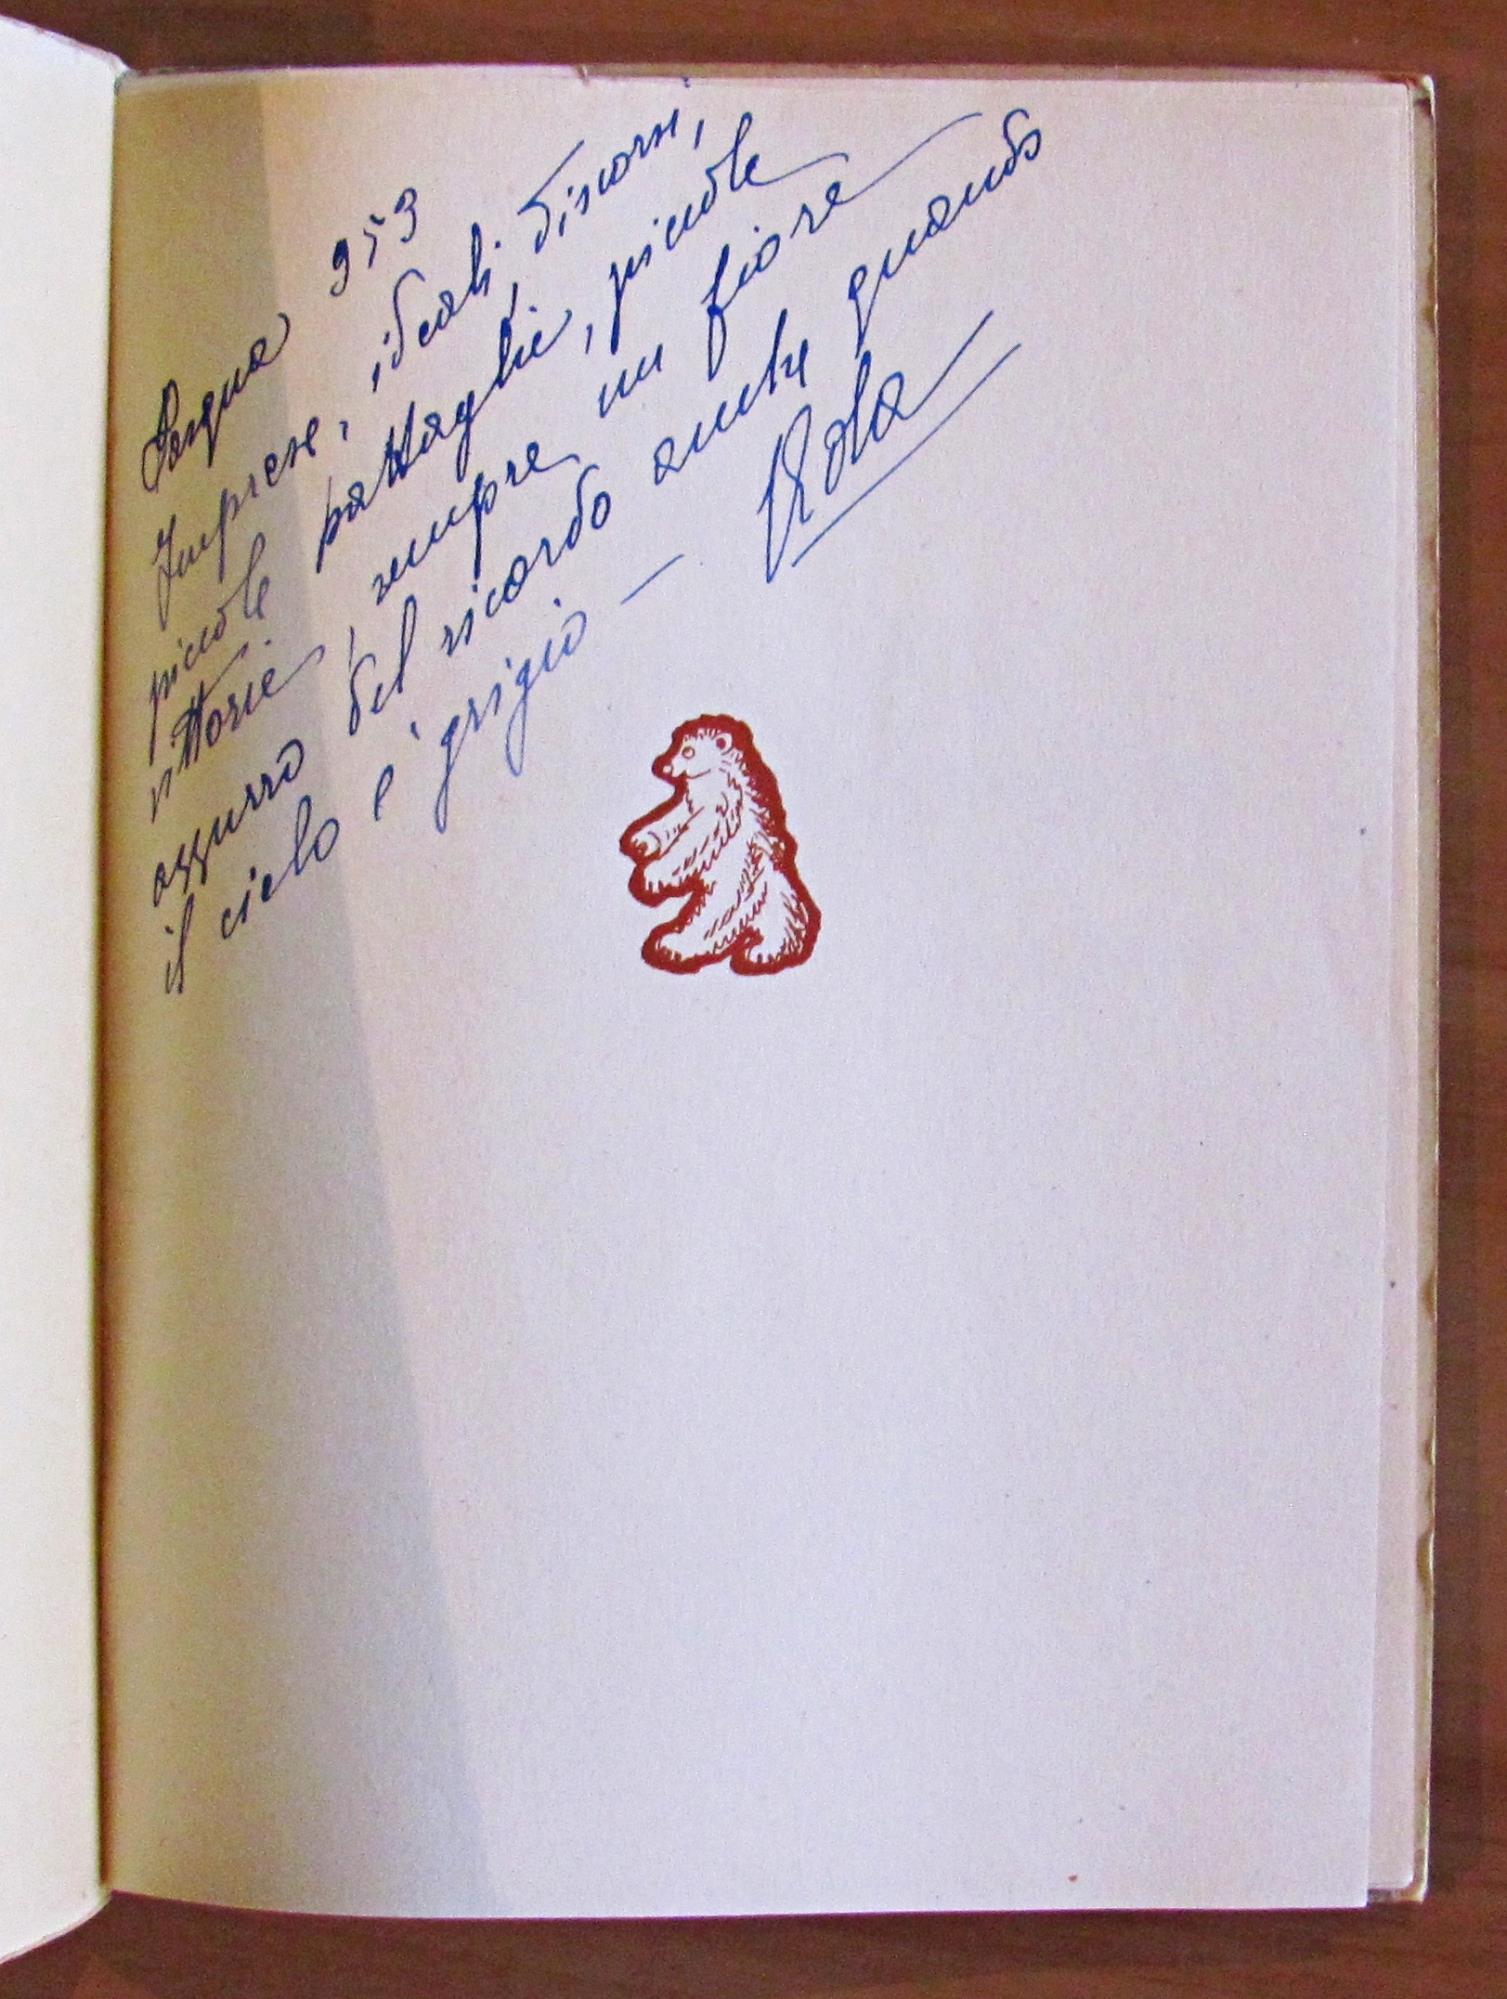 Pasqua 953
Imprese, ideali, discorsi,
piccole battaglie, piccole
vittorie, sempre un fiore
azzurro del ricordo anche quando
il cielo e' grigio —